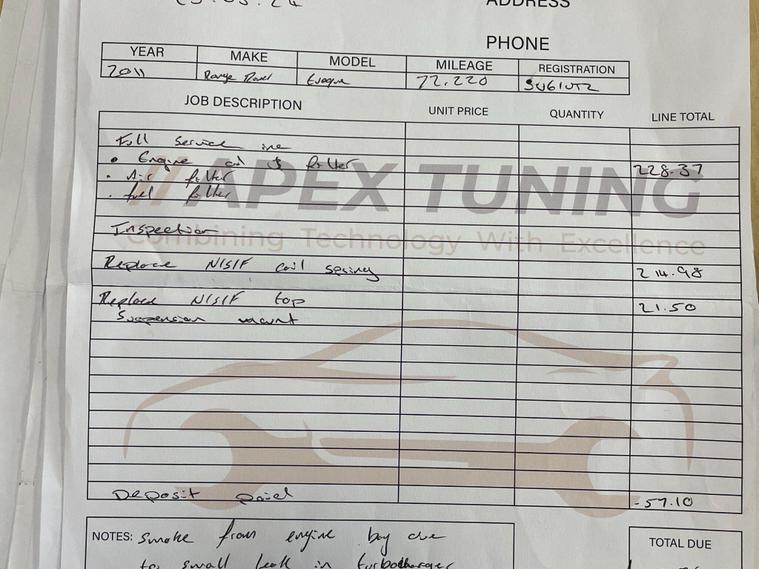 ADDRESS
PHONE
YEAR MAKE MODEL MILEAGE REGISTRATION
2011 Range Rover Evoque 72.220
JOB DESCRIPTION UNIT PRICE QUANTITY LINE TOTAL
Full service inc
• Engine oil & filter 228.37
• Air filter
• fuel filter
APEX TUNING
Inspection
Combining Technology With Excellence
Replace N/S/F coil spring 214.98
Replace N/S/F top 21.50
Suspension mount
Deposit paid -57.10
NOTES: Smoke from engine bay due
to small leak in turbocharger
TOTAL DUE